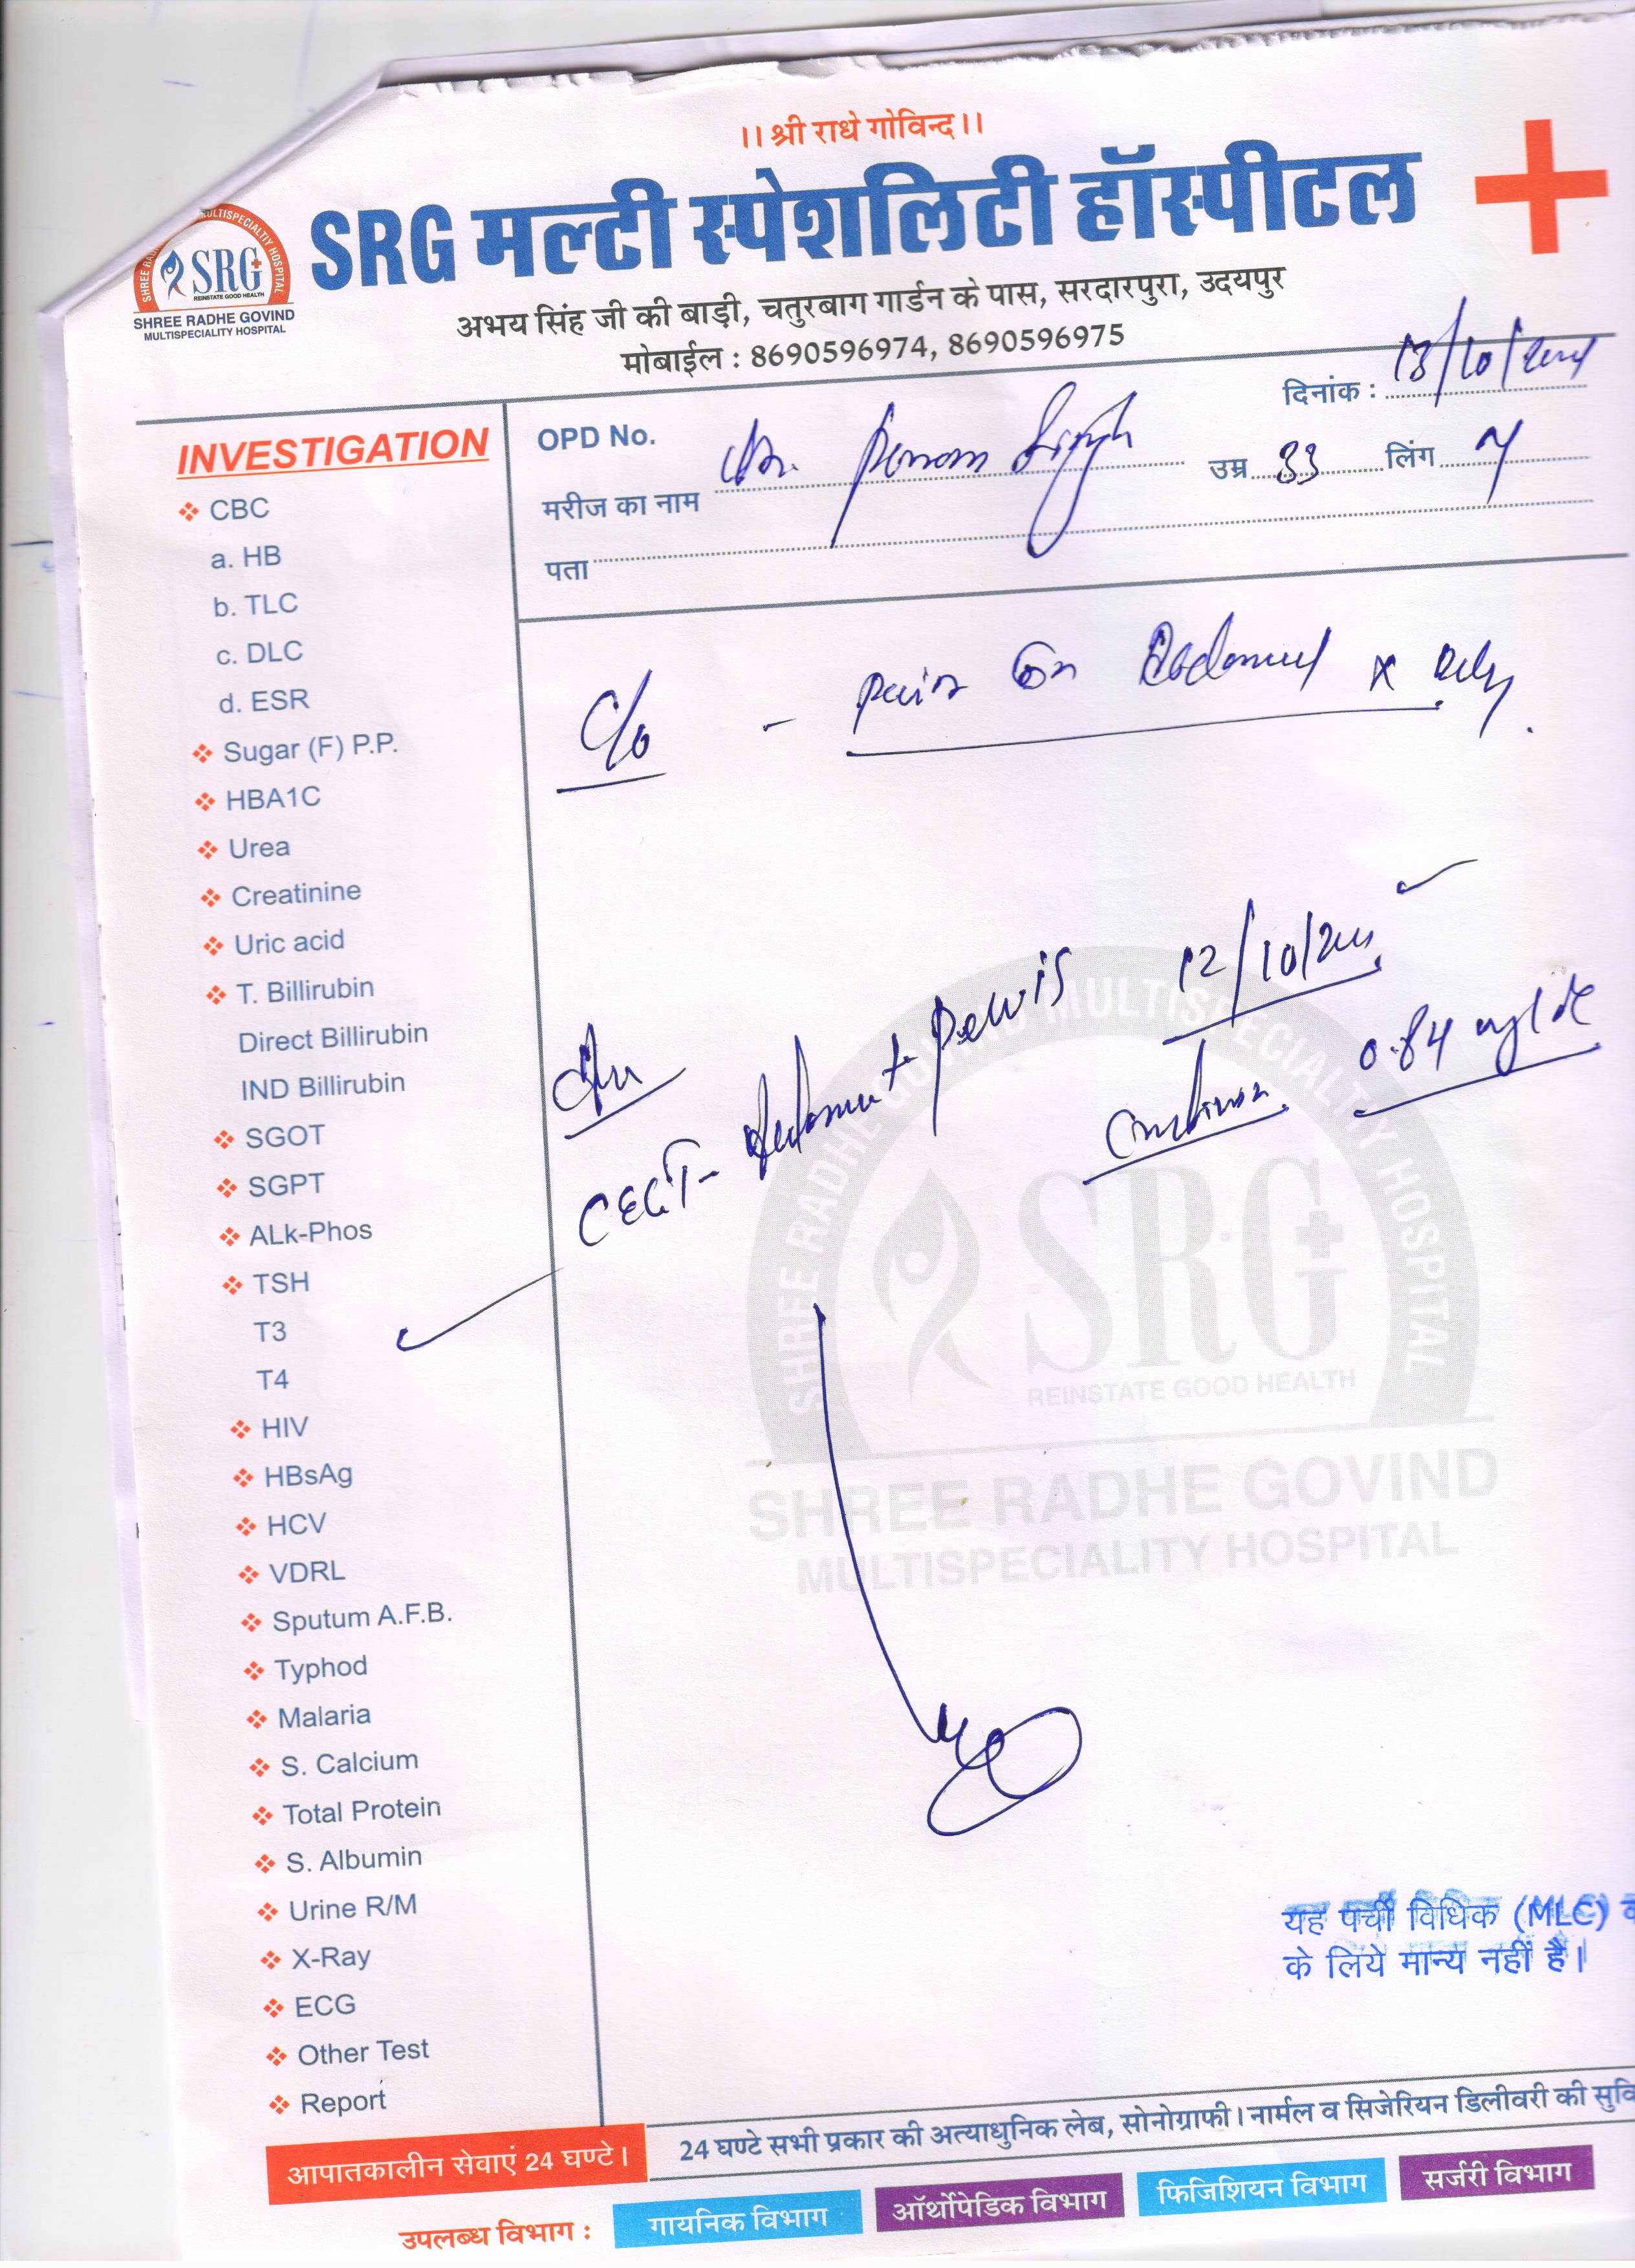 ।। श्री राधे गोविन्द ।।
SRG मल्टी स्पेशलिटी हॉस्पीटल
MULTISPECIALTIY HOSPITAL
SHREE RA
SRG
REINSTATE GOOD HEALTH
SHREE RADHE GOVIND
MULTISPECIALITY HOSPITAL
अभय सिंह जी की बाड़ी, चतुरबाग गार्डन के पास, सरदारपुरा, उदयपुर
मोबाईल : 8690596974, 8690596975
दिनांक : 13/10/2024
OPD No.
मरीज का नाम Singh उम्र 33 लिंग
पता
INVESTIGATION
CBC
a. HB
b. TLC
c. DLC
d. ESR
Sugar (F) P.P.
HBA1C
Urea
Creatinine
Uric acid
T. Billirubin
Direct Billirubin
IND Billirubin
SGOT
SGPT
ALk-Phos
TSH
T3
T4
HIV
HBsAg
HCV
VDRL
Sputum A.F.B.
Typhod
Malaria
S. Calcium
Total Protein
S. Albumin
Urine R/M
X-Ray
ECG
Other Test
Report
C/o - pain in Abdomen x
12/10/
CECT - Abdomen + Pelvis
Creatinine 0.84 mg/dl
SHREE RADHE GOVIND MULTISPECIALTIY HOSPITAL
SRG
REINSTATE GOOD HEALTH
SHREE RADHE GOVIND
MULTISPECIALITY HOSPITAL
यह पर्ची विधिक (MLC)
के लिये मान्य नहीं है।
24 घण्टे सभी प्रकार की अत्याधुनिक लेब, सोनोग्राफी। नार्मल व सिजेरियन डिलीवरी की सुवि
आपातकालीन सेवाएं 24 घण्टे।
उपलब्ध विभाग : गायनिक विभाग ऑर्थोपेडिक विभाग फिजिशियन विभाग सर्जरी विभाग